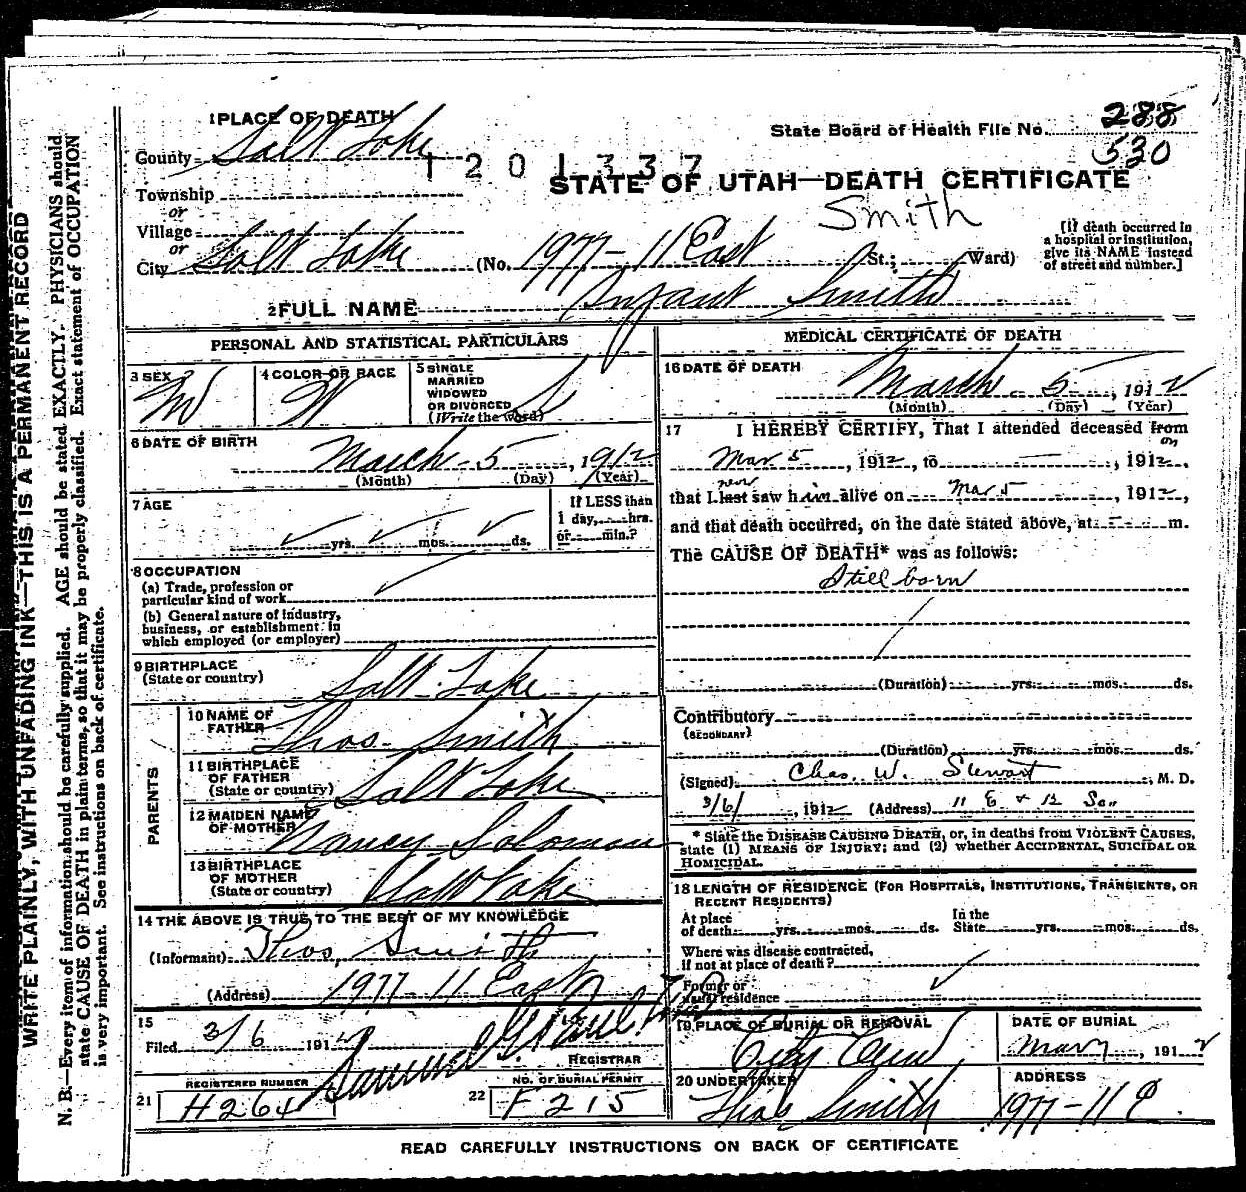 1 PLACE OF DEATH
State Board of Health File No. 288
530
County Salt Lake
1201337
STATE OF UTAH—DEATH CERTIFICATE
Township
or
Village
or
City Salt Lake (No. 1977-11 East St.; Ward)
Smith
[If death occurred in
a hospital or institution,
give its NAME instead
of street and number.]
2 FULL NAME Infant Smith
PERSONAL AND STATISTICAL PARTICULARS
3 SEX M
4 COLOR OR RACE W
5 SINGLE
MARRIED
WIDOWED
OR DIVORCED
(Write the word) S
6 DATE OF BIRTH
March 5, 1912
(Month) (Day) (Year)
7 AGE
yrs. mos. ds.
If LESS than
1 day, hrs.
or min.?
8 OCCUPATION
(a) Trade, profession or
particular kind of work
(b) General nature of Industry,
business, or establishment in
which employed (or employer)
9 BIRTHPLACE
(State or country) Salt Lake
PARENTS
10 NAME OF
FATHER Thos. Smith
11 BIRTHPLACE
OF FATHER
(State or country) Salt Lake
12 MAIDEN NAME
OF MOTHER Nancy Solomon
13 BIRTHPLACE
OF MOTHER
(State or country) Salt Lake
14 THE ABOVE IS TRUE TO THE BEST OF MY KNOWLEDGE
(Informant) Thos. Smith
(Address) 1977-11 East
15
Filed 3/6 1912
REGISTRAR
REGISTERED NUMBER
21 H264
NO. OF BURIAL PERMIT
22 F215
MEDICAL CERTIFICATE OF DEATH
16 DATE OF DEATH
March 5, 1912
(Month) (Day) (Year)
17 I HEREBY CERTIFY, That I attended deceased from
on
Mar 5, 1912, to —, 1912,
never
that I last saw him alive on Mar 5, 1912,
and that death occurred, on the date stated above, at — m.
The CAUSE OF DEATH* was as follows:
Still born
(Duration) yrs. mos. ds.
Contributory
(SECONDARY)
(Duration) yrs. mos. ds.
(Signed) Chas. W. Stewart, M. D.
3/6/, 1912 (Address) 11 E & 12 So
* State the DISEASE CAUSING DEATH, or, in deaths from VIOLENT CAUSES,
state (1) MEANS OF INJURY; and (2) whether ACCIDENTAL, SUICIDAL OR
HOMICIDAL.
18 LENGTH OF RESIDENCE (FOR HOSPITALS, INSTITUTIONS, TRANSIENTS, OR
RECENT RESIDENTS)
At place
of death yrs. mos. ds.
In the
State yrs. mos. ds.
Where was disease contracted,
if not at place of death?
Former or
usual residence
19 PLACE OF BURIAL OR REMOVAL
City Cem
DATE OF BURIAL
Mar 7, 1912
20 UNDERTAKER
Thos Smith
ADDRESS
1977-11 E.
READ CAREFULLY INSTRUCTIONS ON BACK OF CERTIFICATE
WRITE PLAINLY, WITH UNFADING INK—THIS IS A PERMANENT RECORD
N. B.—Every item of information should be carefully supplied. AGE should be stated EXACTLY. PHYSICIANS should
state CAUSE OF DEATH in plain terms, so that it may be properly classified. Exact statement of OCCUPATION
is very important. See instructions on back of certificate.